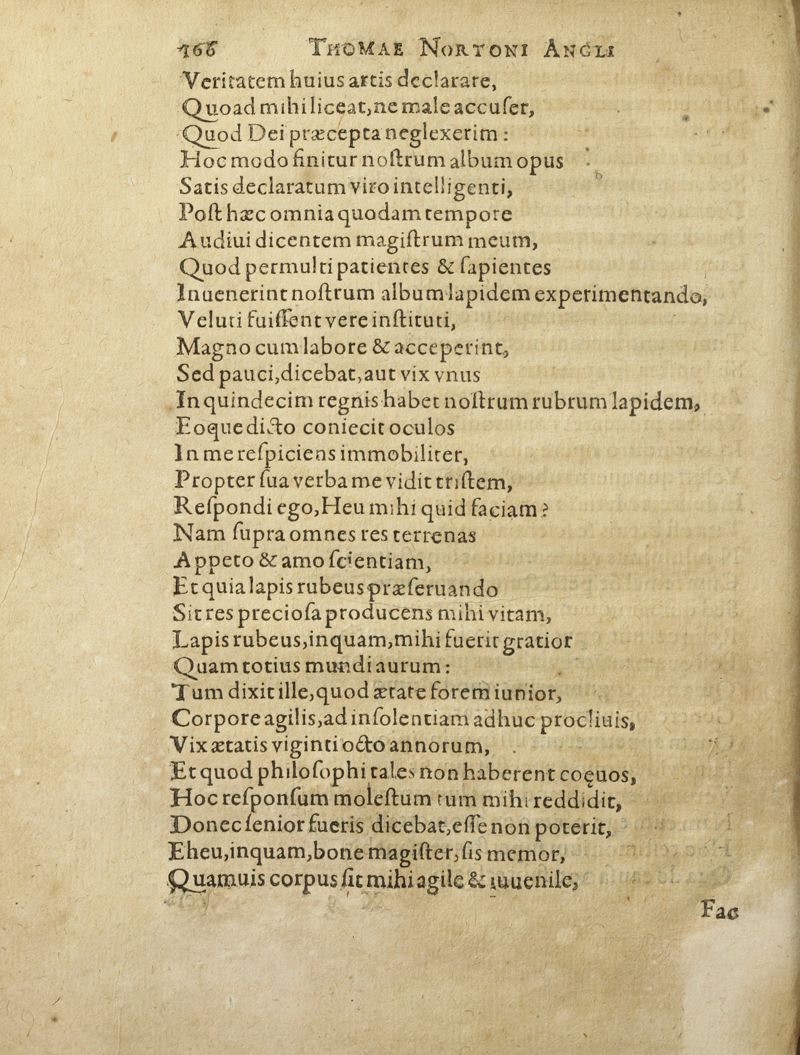 168 THOMAE NORTONI ANGLI
Veritatem huius artis declarare,
Quoad mihi liceat, ne male accuſer,
Quod Dei præcepta neglexerim:
Hoc modo finitur noſtrum album opus
Satis declaratum viro intelligenti,
Poſt hæc omnia quodam tempore
Audiui dicentem magiſtrum meum,
Quod permulti patientes & ſapientes
Inuenerint noſtrum album lapidem experimentando,
Veluti fuiſſent vere inſtituti,
Magno cum labore & acceperint,
Sed pauci, dicebat, aut vix vnus
In quindecim regnis habet noſtrum rubrum lapidem,
Eoque dicto coniecit oculos
In me reſpiciens immobiliter,
Propter ſua verba me vidit triſtem,
Reſpondi ego, Heu mihi quid faciam?
Nam ſupra omnes res terrenas
Appeto & amo ſcientiam,
Et quia lapis rubeus præſeruando
Sit res precioſa producens mihi vitam,
Lapis rubeus, inquam, mihi fuerit gratior
Quam totius mundi aurum:
Tum dixit ille, quod ætate forem iunior,
Corpore agilis, ad inſolentiam adhuc procliuis,
Vix ætatis viginti octo annorum,
Et quod philoſophi tales non haberent coęuos,
Hoc reſponſum moleſtum tum mihi reddidit,
Donec ſenior fueris dicebat, eſſe non poterit,
Eheu, inquam, bone magiſter, ſis memor,
Quamuis corpus ſit mihi agile & iuuenile,
Fac